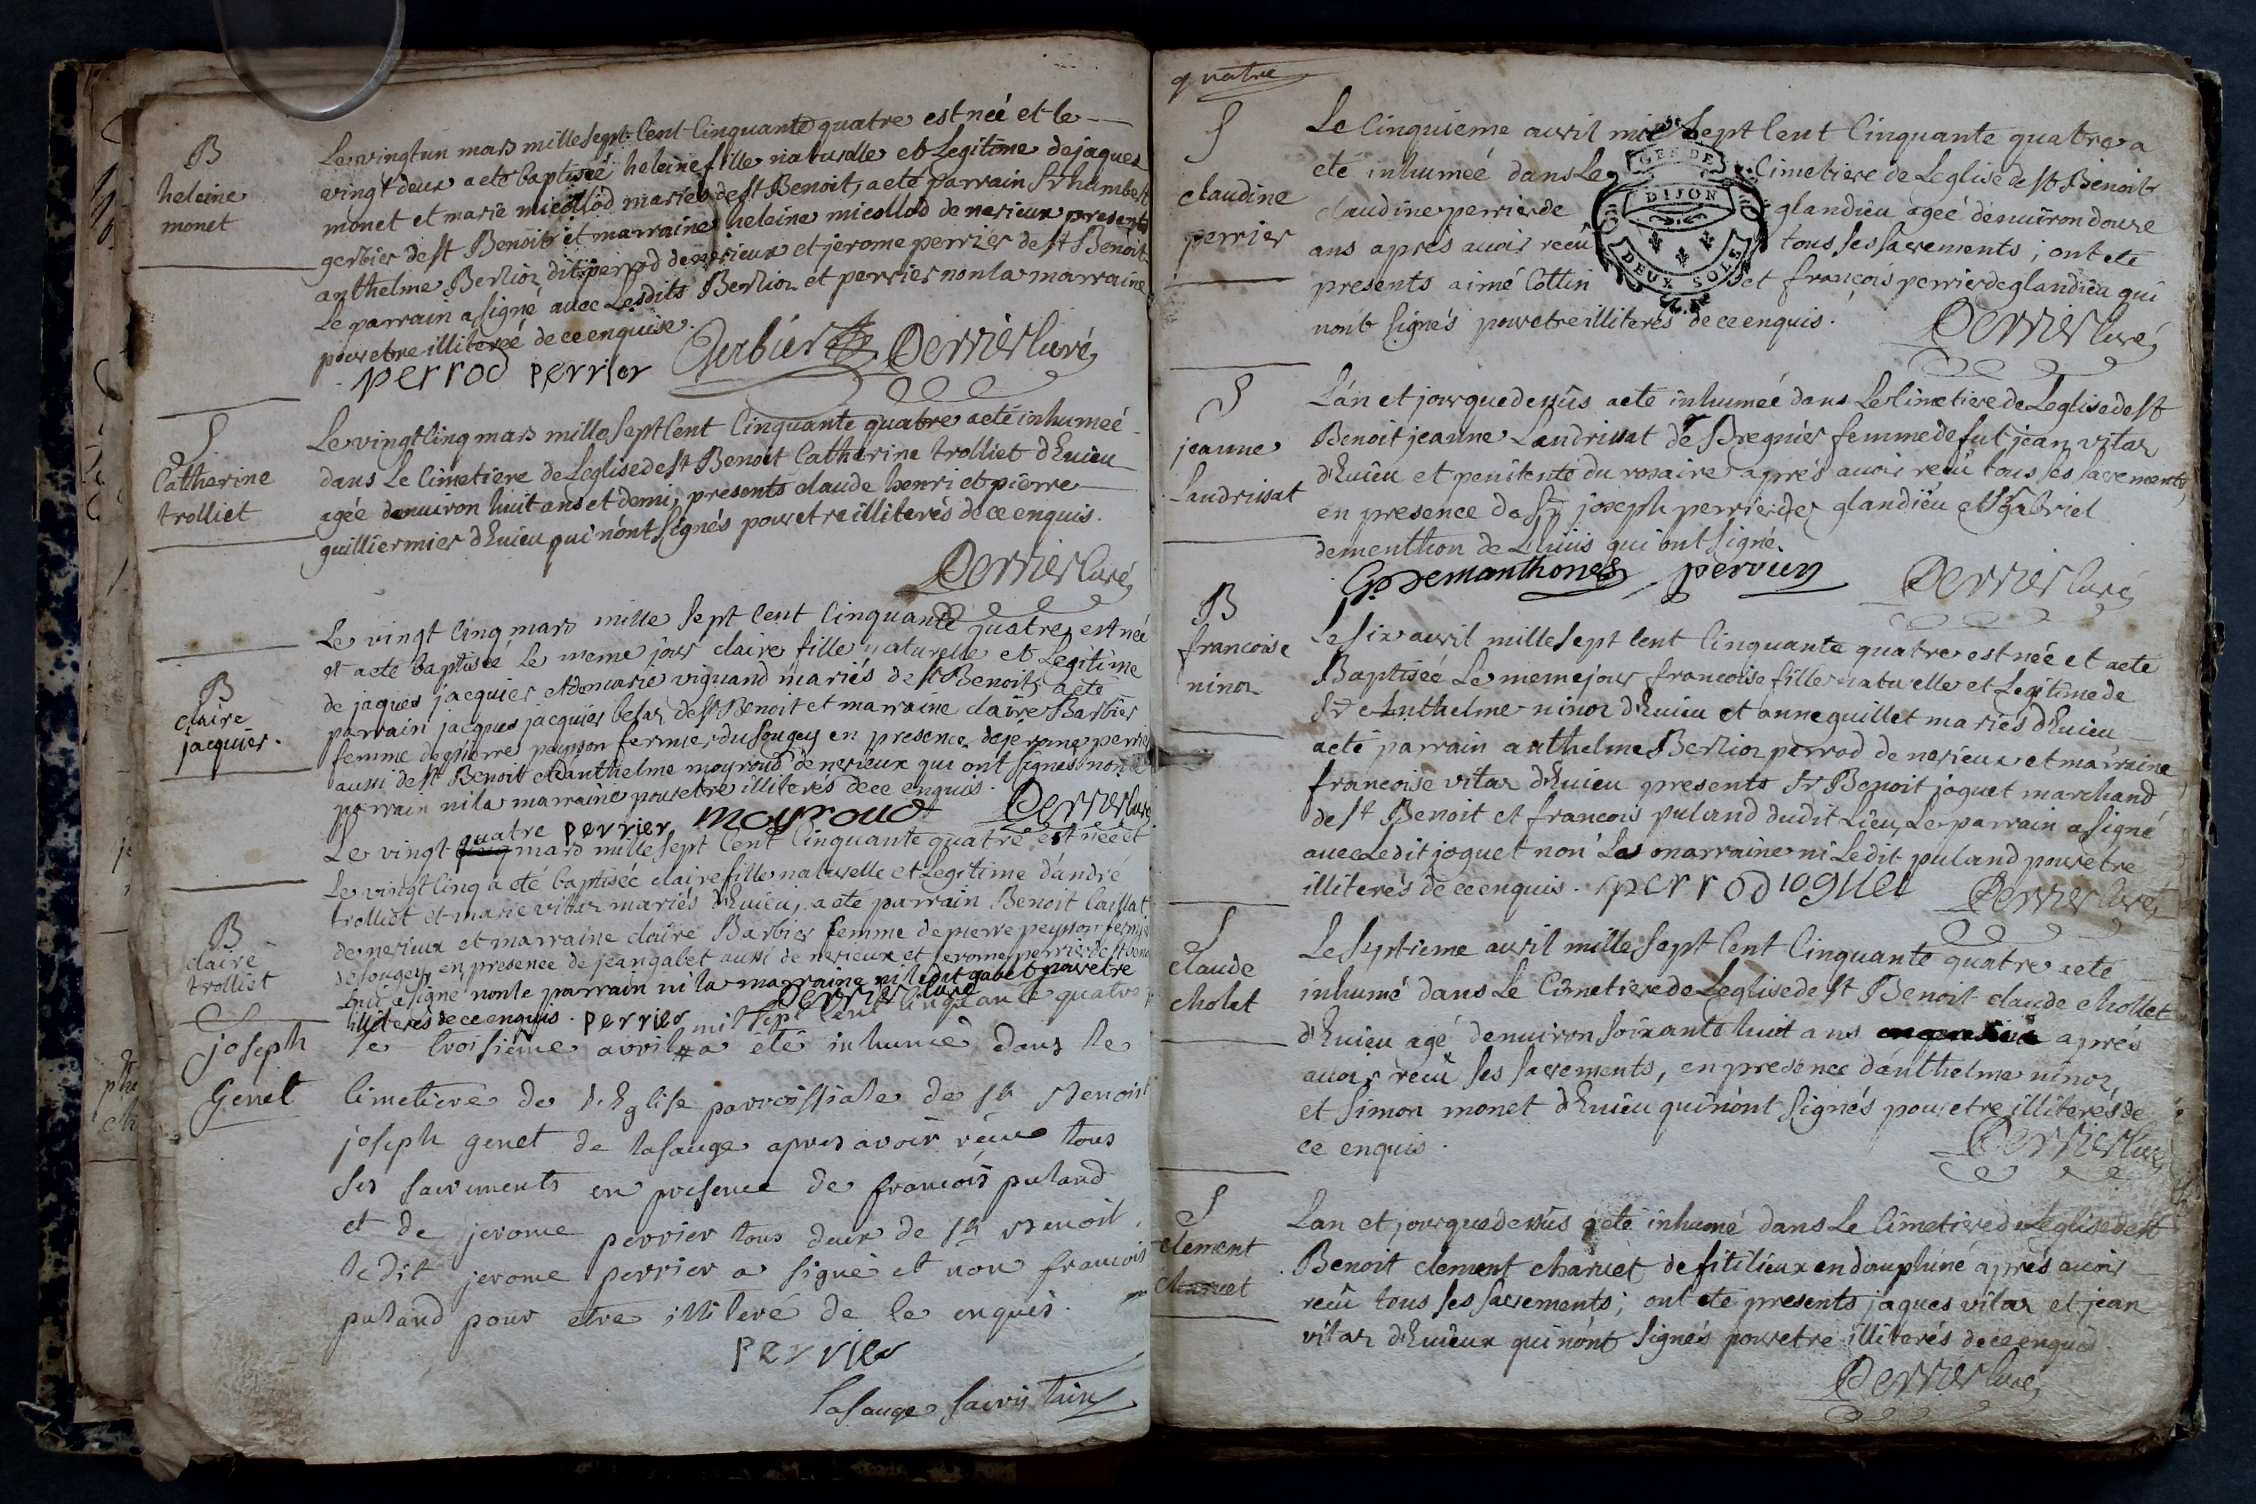 B
heleine
monet
Le vingt un mars mille sept Cent Cinquante quatre est neé et le
vingt deux a eté baptiseé heleine fille naturelle et Legitime de jaques
monet et marie micollod mariés de st Benoit, a eté parrain Sr humbert
gerbier de st Benoit et marraine heleine micollod de nerieux presents
anthelme Berlioz dit perrod de nerieux et jerome perrier de st Benoit
Le parrain a signé avec Lesdits Berlioz et perrier non la marraine
pour etre illitereé de ce enquise.
perrod perrier Gerbier Perrier Curé
S
Catherine
trolliet
Le vingt Cinq mars mille sept Cent Cinquante quatre a eté inhumeé
dans Le Cimetiere de Leglise de st Benoit Catherine trolliet d'Euieu
ageé denuiron huit ans et demi, presents claude henri et pierre
guilliermier d'Euieu qui n'ont signés pour etre illiterés de ce enquis.
Perrier Curé
B
claire
jacquier.
Le vingt Cinq mars mille sept Cent Cinquante quatre est neé
et a eté baptiseé Le meme jour claire fille naturelle et Legitime
de jaques jacquier et de marie viguand mariés de st Benoit, a eté
parrain jacques jacquier besaz de st Benoit et marraine claire Barbier
femme de pierre peysson fermier du Sougey en presence de jerome perrier
aussi de st Benoit et d'anthelme moyroud de nerieux qui ont signés non le
parrain ni la marraine pour etre illiterés de ce enquis.
perrier moyroud Perrier Curé
B
claire
trolliet
Le vingt quatre mars mille sept Cent Cinquante quatre est neé et
Le vingt Cinq a eté baptiseé claire fille naturelle et Legitime d'andré
trolliet et marie vitaz mariés d'Euieu, a eté parrain Benoit Caillat
de nerieux et marraine claire Barbier femme de pierre peysson fermier
de sougey, en presence de jean gabet aussi de nerieux et jerome perrier de st Benoit
qui a signé non le parrain ni la marraine ni le dit gabet pour etre
illiterés de ce enquis. perrier Perrier Curé
joseph
Genet
mil sept Cent Cinquante quatre
le troisiéme avril # a eté inhumé dans le
Cimetiere de l'Eglise parroissiale de st Benoist
joseph genet de lasauge apres avoir réçue tous
ses sacrements en presence de francois puland
et de jerome perrier tous deux de st Benoit,
ledit jerome perrier a signé et non francois
puland pour etre illiteré de ce enquis.
perrier
Lasauge Sacristain
quatre
S
claudine
perrier
GEN DE
DIJON
DEUX SOLS
Le Cinquieme auril mil sept Cent Cinquante quatre a
eté inhumeé dans Le Cimetiere de Leglise de st Benoit
claudine perrier de glandieu ageé denuiron douze
ans aprés auoir recû tous ses sacrements; ont eté
presents aimé Cottin et françois perrier de glandieu qui
n'ont signés pour etre illiterés de ce enquis.
Perrier Curé
S
jeanne
Landrissat
L'an et jour que dessûs a eté inhumeé dans Le Cimetiere de Leglise de st
Benoit jeanne Landrissat de Bregnier femme de fut jean vitaz
d'Euieu et penitente du rosaire aprés auoir recû tous ses sacrements
en presence de Sr joseph perrier de glandieu et Sr gabriel
dementhon de Lhuis qui ont signé.
G Demanthones perrier Perrier Curé
B
francoise
ninoz
Le six auril mille sept Cent Cinquante quatre est neé et a eté
Baptiseé Le meme jour francoise fille naturelle et Legitime de
Sr Anthelme ninoz d'Euieu et anne guillet mariés d'Euieu
a eté parrain anthelme Berlioz perrod de nerieux et marraine
francoise vitaz d'Euieu presents Sr Benoit joguet marchand
de st Benoit et francois puland dudit Lieu, Le parrain a signé
auec Ledit joguet non La marraine ni Ledit puland pour etre
illiterés de ce enquis. perrod joguet Perrier Curé
S
claude
cholet
Le septieme auril mille sept Cent Cinquante quatre a eté
inhumé dans Le Cimetiere de Leglise de st Benoit claude chollet
d'Euieu agé denuiron soixante huit ans aprés
auoir recû ses sacrements, en presence d'anthelme ninoz
et simon monet d'Euieu qui n'ont signés pour etre illiterés de
ce enquis.
Perrier Curé
S
clement
charuet
Lan et jour que dessûs a eté inhumé dans Le Cimetiere de Leglise de st
Benoit clement charuet de fitilieux en dauphiné aprés auoir
recû tous ses sacrements; ont eté presents jaques vitaz et jean
vitaz d'Euieux qui n'ont signés pour etre illiterés de ce enquis.
Perrier Curé